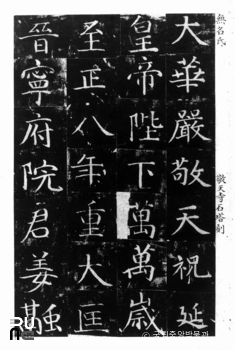 無名氏
敬天寺石塔刻
大華嚴敬天祝延
皇帝陛下萬萬歲
至正八年重大匡
晉寧府院君姜融
국립중앙박물관